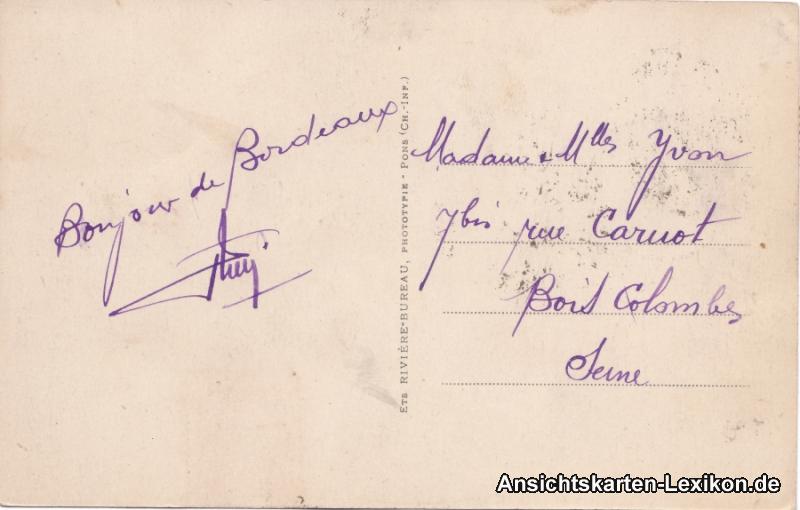 Bonjour de Bordeaux
ETS RIVIÈRE-BUREAU, PHOTOTYPIE - PONS (CH.-INF.)
Madame & Mlles Yvon
7bis rue Carnot
Bois Colombes
Seine
Ansichtskarten-Lexikon.de